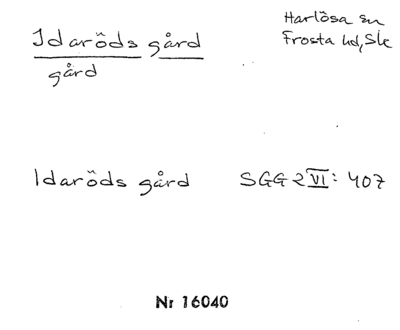 Idaröds gård
gård
Harlösa sn
Frosta hd, Sk
Idaröds gård SGG 2 VI: 407
Nr 16040